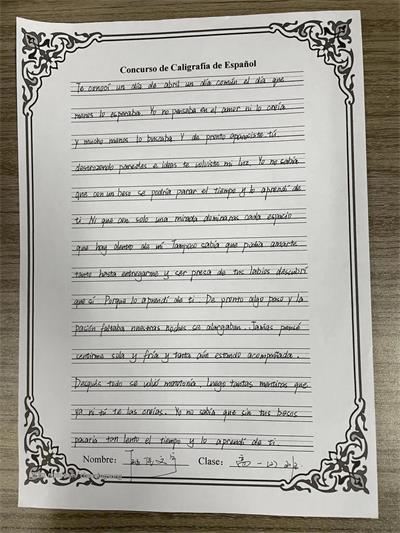 Concurso de Caligrafía de Español
Te conocí un día de abril un día común el día que
menos lo esperaba. Yo no pensaba en el amor ni lo creía
y mucho menos lo buscaba. Y de pronto apareciste tú
destrozando paredes e ideas te volviste mi luz. Yo no sabía
que con un beso se podría parar el tiempo y lo aprendí de
ti. Ni que con solo una mirada dominaras cada espacio
que hay dentro de mí Tampoco sabía que podía amarte
tanto hasta entregarme y ser presa de tus labios descubrí
que sí. Porque lo aprendí de ti. De pronto algo paso y la
pasión faltaba nuestras noches se alargaban. Jamás pensé
sentirme sola y fría y tanta aún estando acompañada.
Después todo se volvió monotonía. Luego tantas mentiras que
ya ni tú te las creías. Yo no sabía que sin tus besos
pasaría tan lento el tiempo y lo aprendí de ti.
Nombre: Clase: